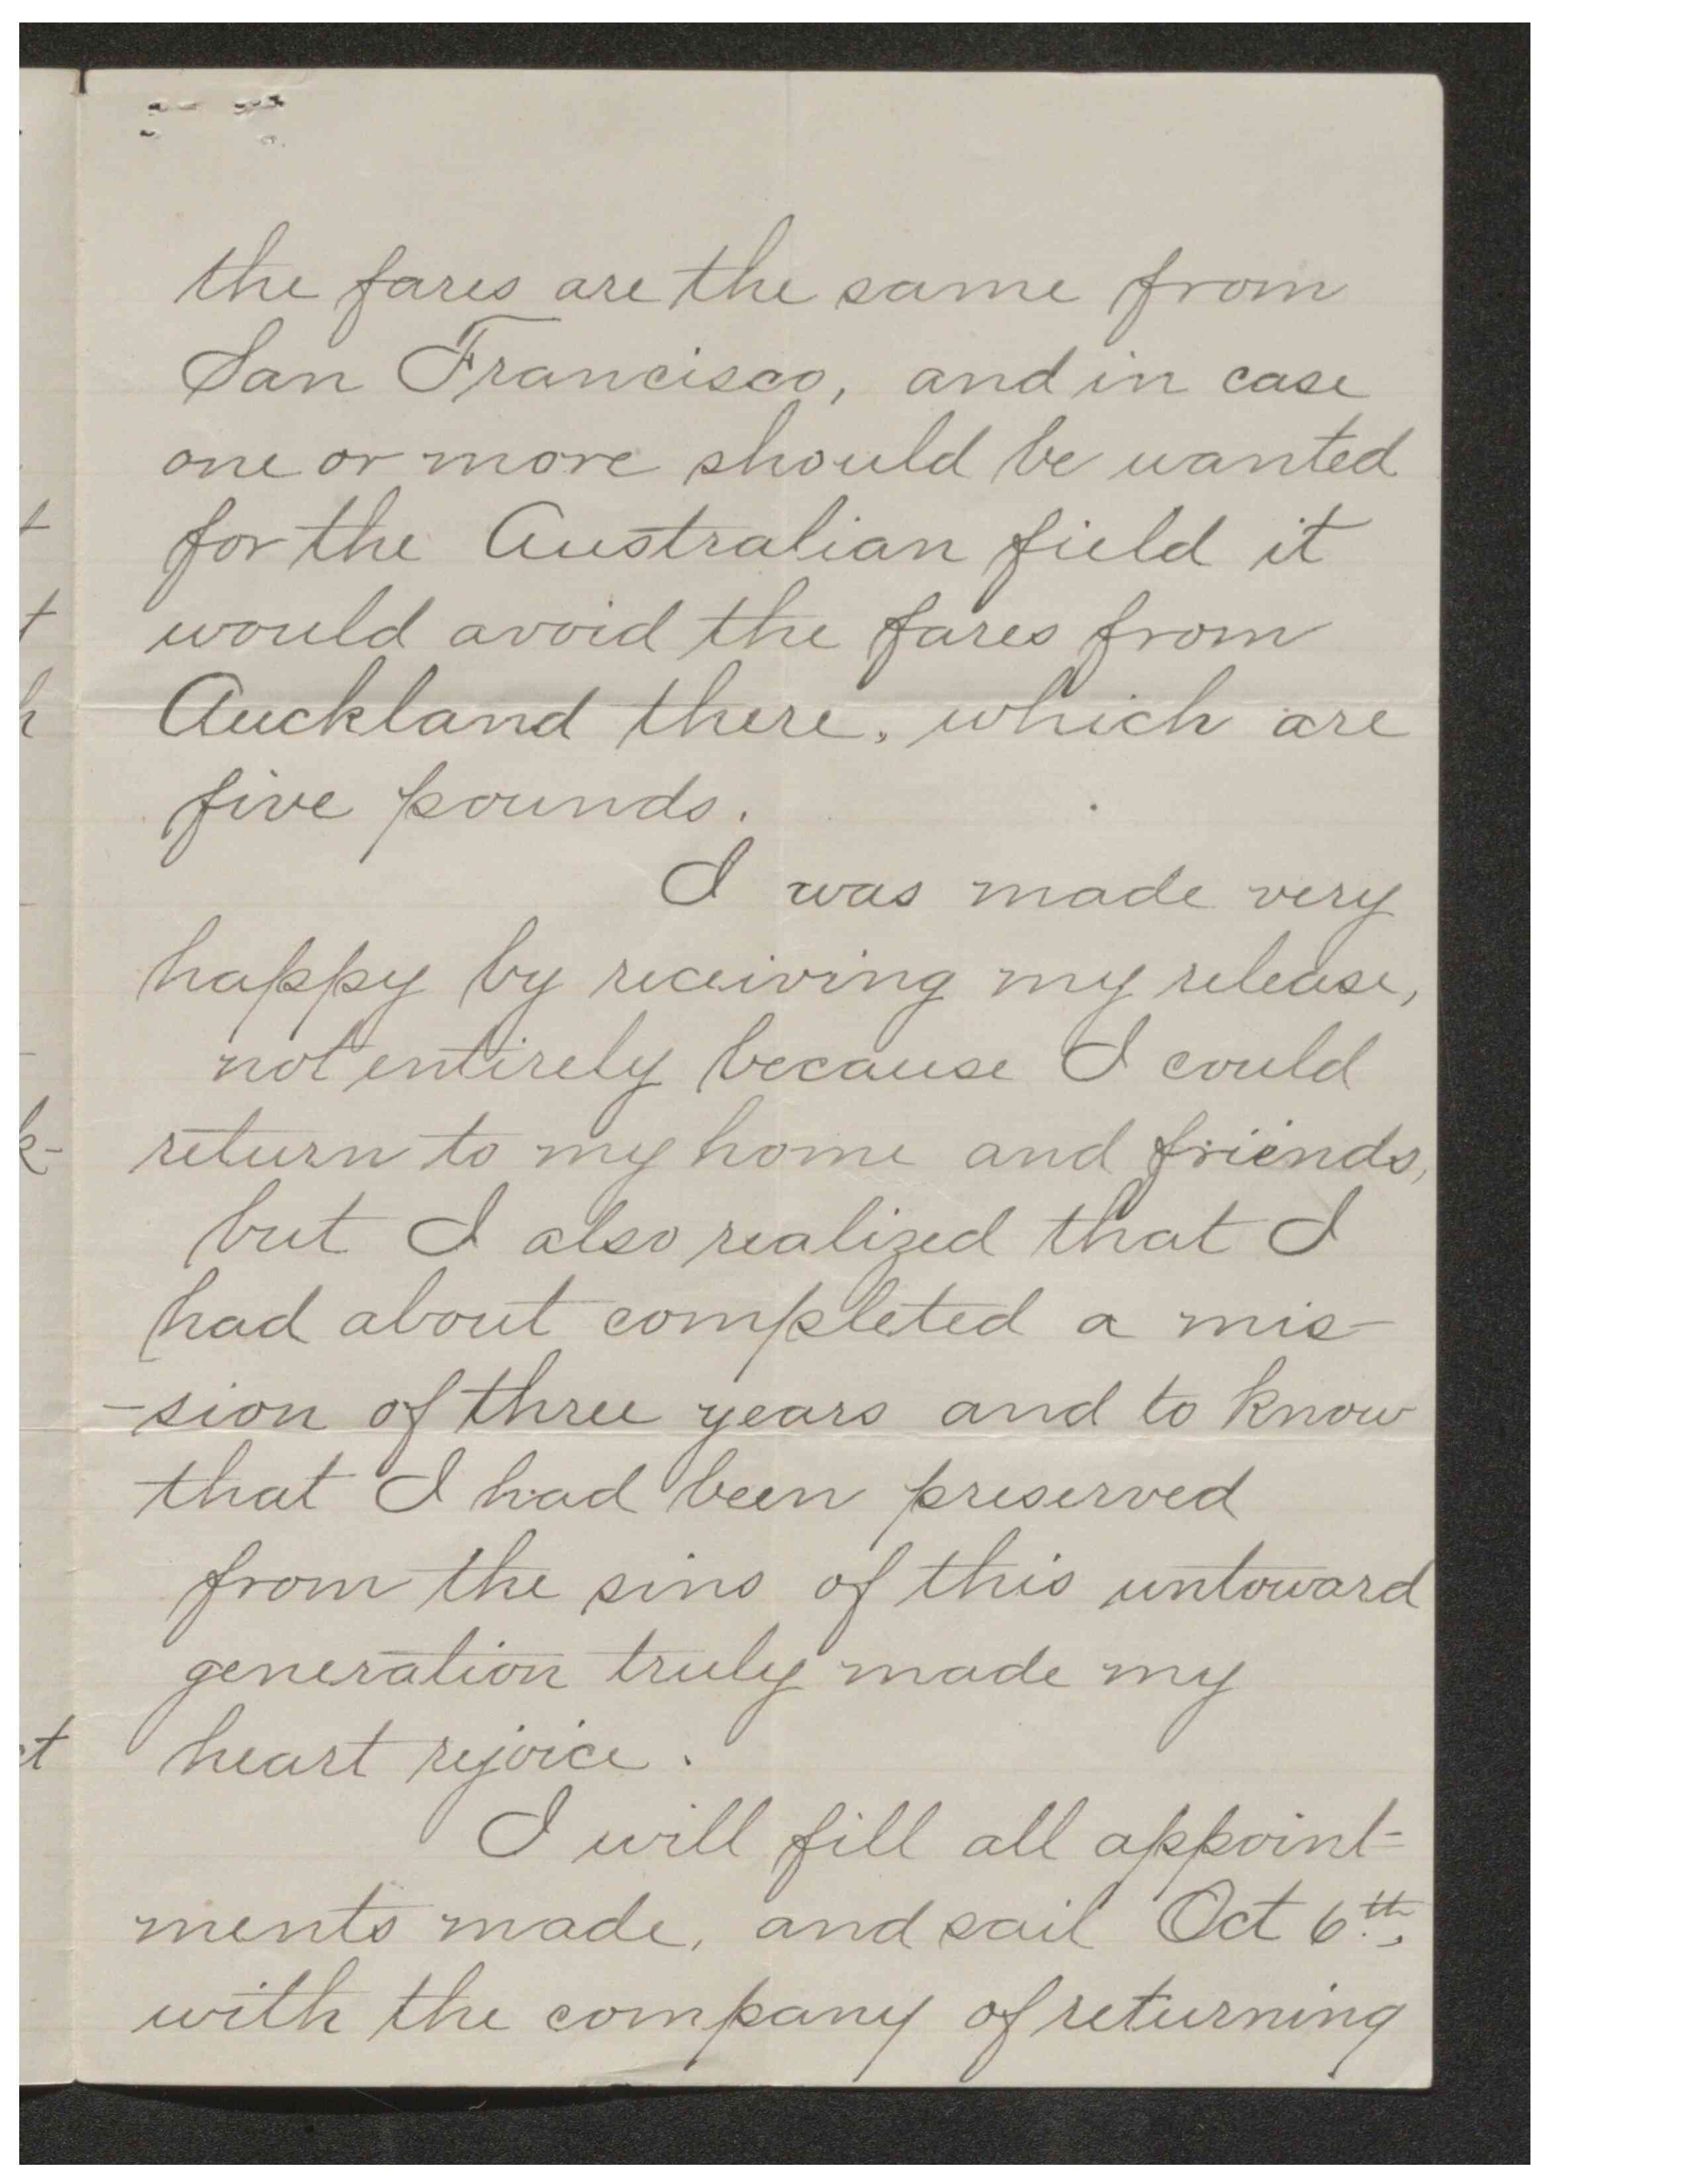 the fares are the same from
San Francisco, and in case
one or more should be wanted
for the Australian field it
would avoid the fares from
Auckland there, which are
five pounds.
I was made very
happy by receiving my release,
not entirely because I could
return to my home and friends,
but I also realized that I
had about completed a mis-
-sion of three years and to know
that I had been preserved
from the sins of this untoward
generation truly made my
heart rejoice.
I will fill all appoint-
ments made, and sail Oct 6th,
with the company of returning